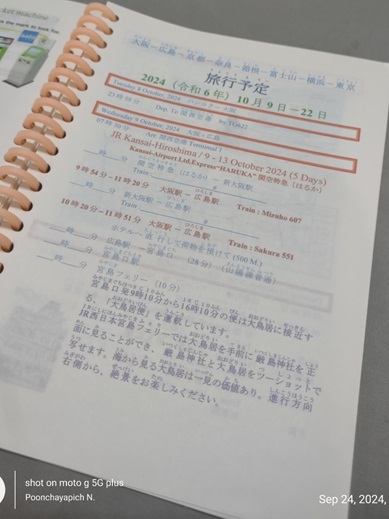 ket machine
大阪－広島－京都－奈良－箱根－富士山－横浜－東京
旅行予定
2024 (令和6年) 10月9日－22日
Tuesday 8 October, 2024
23時59分 Dep. 関西空港 by TG622
Wednesday 9 October, 2024 大阪－広島
07時30分 Arr. 関西空港 Terminal 1
JR Kansai-Hiroshima / 9 - 13 October 2024 (5 Days)
Kansai-Airport Ltd.Express"HARUKA" 関空特急 (はるか)
__時__分 関空特急 (はるか) 新大阪駅
Train
9時54分－11時20分 大阪駅－広島駅 Train : Mizuho 607
__時__分 新大阪駅－広島駅
Train
10時20分－11時51分 大阪駅－広島駅 Train : Sakura 551
__時__分 ホテルへ 荷物を預けて (500 M.)
__時__分 広島駅－宮島口駅 (28分) (山陽本線)
__時__分 宮島口駅
宮島フェリー (10分)
宮島口発9時10分から16時10分の便は大鳥居に接近す
る、「大鳥居便」を運航しています。
JR西日本宮島フェリーでは大鳥居を手前に厳島神社を正
面に見ることができ、厳島神社と大鳥居をツーショットで
写せます。海から見る大鳥居は一見の価値あり。進行方向
右側から、絶景をお楽しみください。
shot on moto g 5G plus
Poonchayapich N.
Sep 24, 2024,